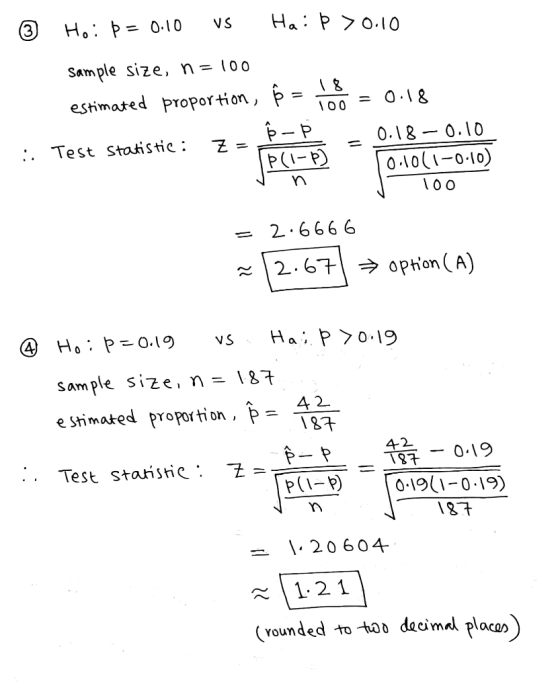 ③ H₀: p = 0.10 vs Hₐ: p > 0.10
sample size, n = 100
estimated proportion, p̂ = 18/100 = 0.18
∴ Test statistic: Z = (p̂ - p)/√(p(1-p)/n) = (0.18 - 0.10)/√(0.10(1-0.10)/100)
= 2.6666
≈ 2.67 ⇒ option (A)
④ H₀: p = 0.19 vs Hₐ: p > 0.19
sample size, n = 187
estimated proportion, p̂ = 42/187
∴ Test statistic: Z = (p̂ - p)/√(p(1-p)/n) = (42/187 - 0.19)/√(0.19(1-0.19)/187)
= 1.20604
≈ 1.21
(rounded to two decimal places)